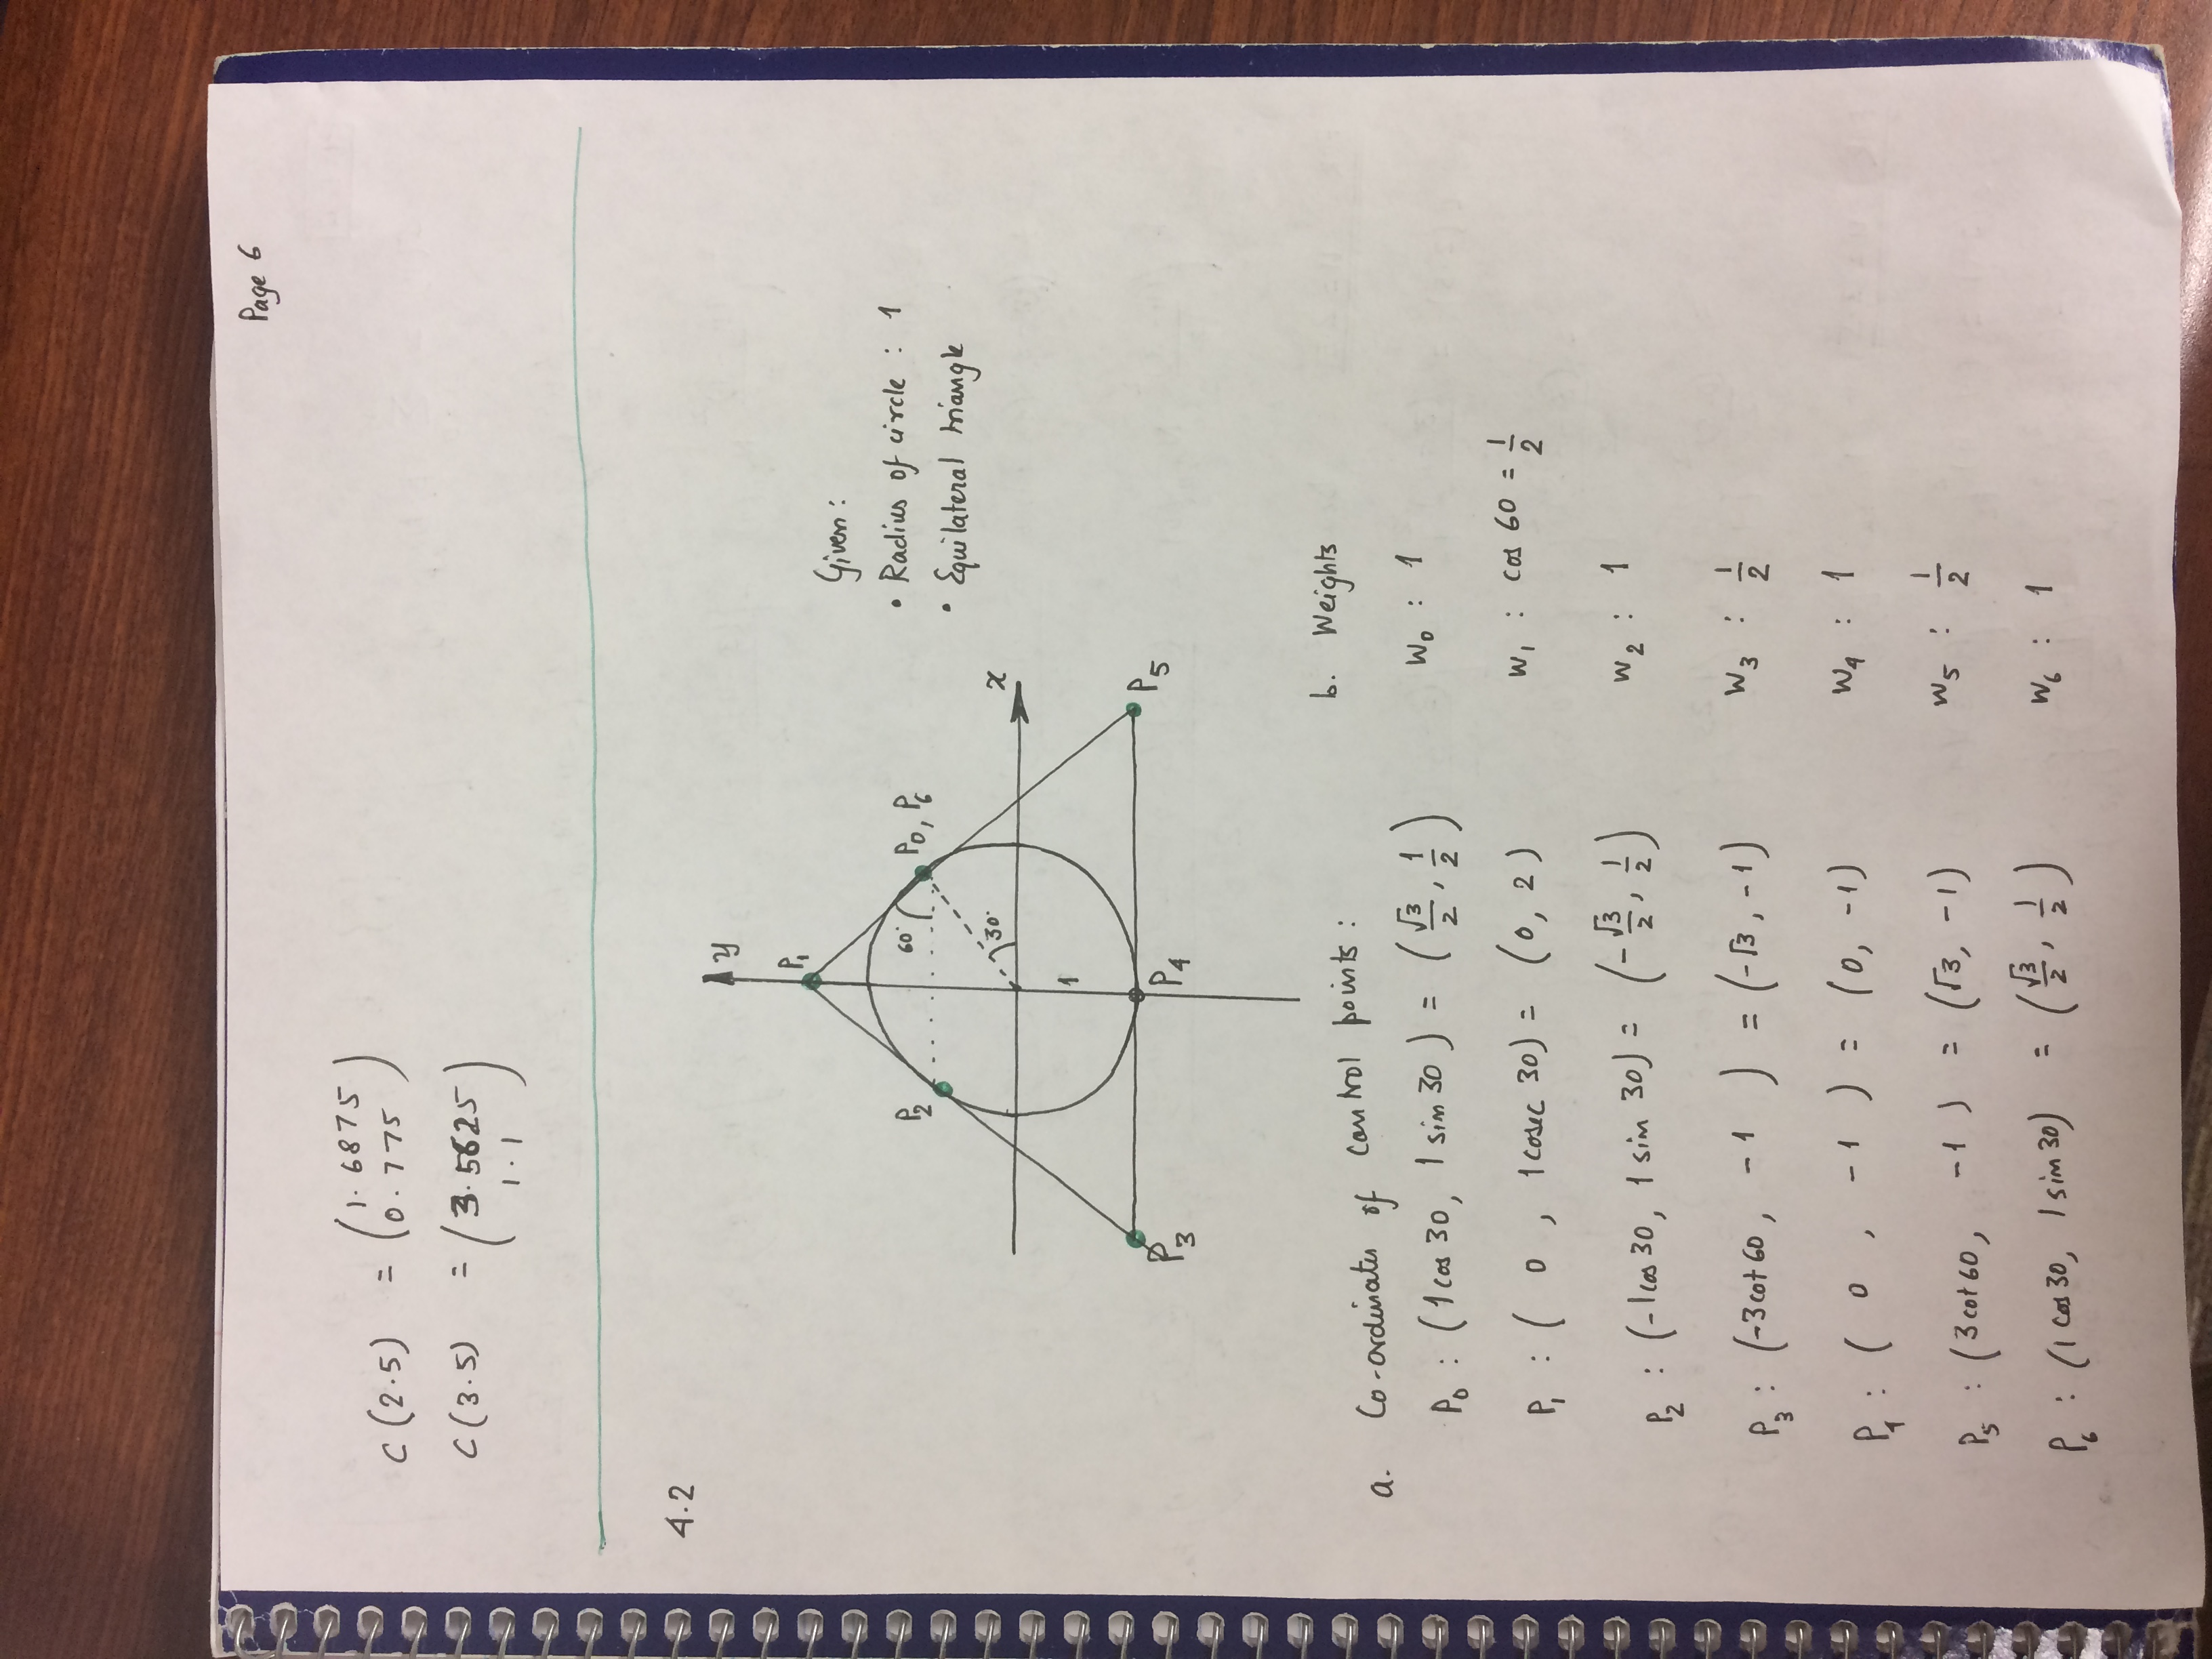 Page 6
C(2.5) = (1.6875
0.775)
C(3.5) = (3.5625
1.1)
4.2
y
P₁
P₂
60°
P₀, P₆
30°
x
1
P₃
P₄
P₅
Given:
• Radius of circle : 1
• Equilateral triangle
a. Co-ordinates of control points :
P₀ : (1 cos 30, 1 sin 30) = (√3/2, 1/2)
P₁ : ( 0 , 1 cosec 30) = (0, 2)
P₂ : (-1 cos 30, 1 sin 30) = (-√3/2, 1/2)
P₃ : (-3 cot 60, -1 ) = (-√3, -1)
P₄ : ( 0 , -1 ) = (0, -1)
P₅ : (3 cot 60, -1 ) = (√3, -1)
P₆ : (1 cos 30, 1 sin 30) = (√3/2, 1/2)
b. Weights
W₀ : 1
W₁ : cos 60 = 1/2
W₂ : 1
W₃ : 1/2
W₄ : 1
W₅ : 1/2
W₆ : 1